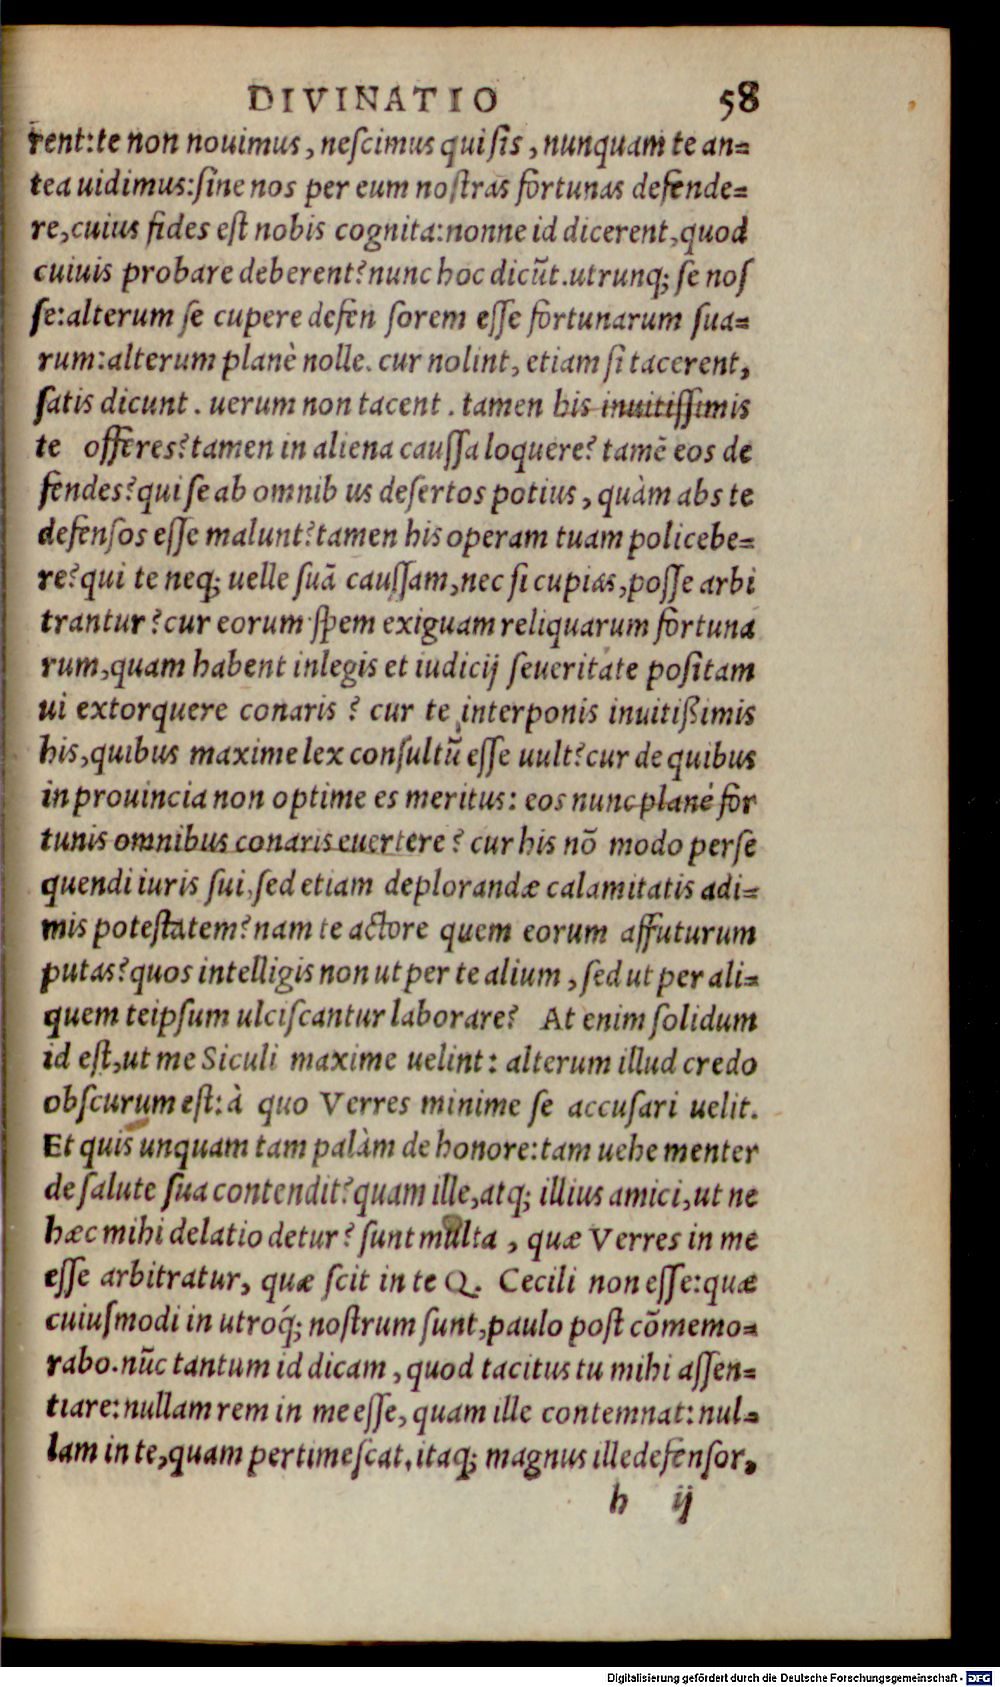 DIVINATIO 58
rent:te non nouimus, nescimus qui sis, nunquam te an=
tea uidimus:sine nos per eum nostras fortunas defende=
re,cuius fides est nobis cognita:nonne id dicerent,quod
cuiuis probare deberent?nunc hoc dicūt.utrunq; se nos
se:alterum se cupere defen sorem esse fortunarum sua=
rum:alterum planè nolle. cur nolint, etiam si tacerent,
satis dicunt. uerum non tacent. tamen his inuitissimis
te offeres?tamen in aliena caussa loquere? tamē eos de
fendes?qui se ab omnib us desertos potius, quàm abs te
defensos esse malunt?tamen his operam tuam policebe=
re?qui te neq; uelle suā caussam,nec si cupias,posse arbi
trantur?cur eorum spem exiguam reliquarum fortuna
rum,quam habent in legis et iudicij seueritate positam
ui extorquere conaris? cur te interponis inuitißimis
his,quibus maxime lex consultū esse uult?cur de quibus
in prouincia non optime es meritus: eos nunc planè for
tunis omnibus conaris euertere? cur his nō modo perse
quendi iuris sui,sed etiam deplorandæ calamitatis adi=
mis potestatem?nam te actore quem eorum affuturum
putas?quos intelligis non ut per te alium, sed ut per ali=
quem teipsum ulciscantur laborare? At enim solidum
id est,ut me Siculi maxime uelint: alterum illud credo
obscurum est:à quo Verres minime se accusari uelit.
Et quis unquam tam palàm de honore:tam uehe menter
de salute sua contendit?quam ille,atq; illius amici,ut ne
hæc mihi delatio detur? sunt multa, quæ Verres in me
esse arbitratur, quæ scit in te Q. Cecili non esse:quæ
cuiusmodi in utroq́; nostrum sunt,paulo post cōmemo=
rabo.nūc tantum id dicam, quod tacitus tu mihi assen=
tiare:nullam rem in me esse, quam ille contemnat:nul=
lam in te,quam pertimescat.itaq; magnus ille defensor,
h ij
Digitalisierung gefördert durch die Deutsche Forschungsgemeinschaft - DFG